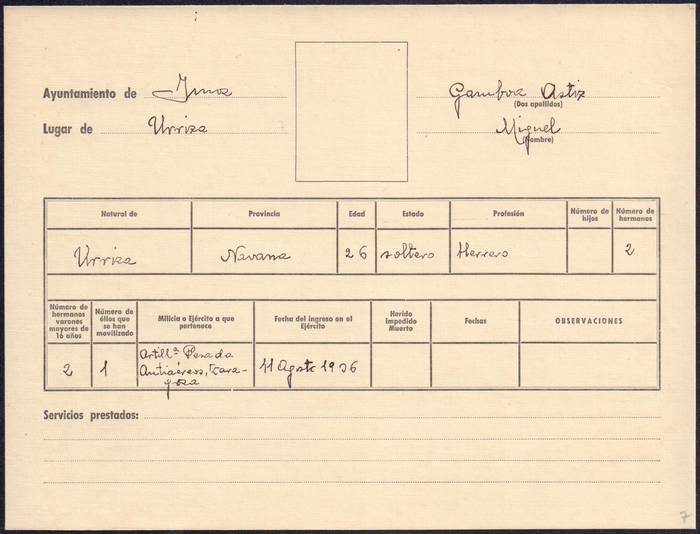 Ayuntamiento de Imoz
Gamboa Astiz
(Dos apellidos)
Lugar de Urriza
Miguel
(Nombre)
Natural de Provincia Edad Estado Profesión Número de hijos Número de hermanos
Urriza Navarra 26 soltero Herrero 2
Número de hermanos varones mayores de 16 años Número de éllos que se han movilizado Milicia o Ejército a que pertenece Fecha del ingreso en el Ejército Herido Impedido Muerto Fechas OBSERVACIONES
2 1 Artillª Pesada Antiaéreos, Zaragoza 11 Agosto 1936
Servicios prestados:
7